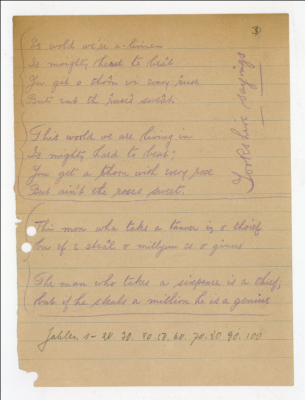 3
Yorkshire sayings
Is wold we're a-livin
Is mighty hard to beät
You get a thorn wi every
But
This world we are living in
Is mighty hard to beat;
You get a thorn with every rose
But ain't the roses sweet.
This man who takes a tanner is a thief
but if e steäl a million es a genius
The man who takes a sixpence is a thief,
but if he steals a million he is a genius
20. 30. 40. 50. 60. 70. 80 90. 100